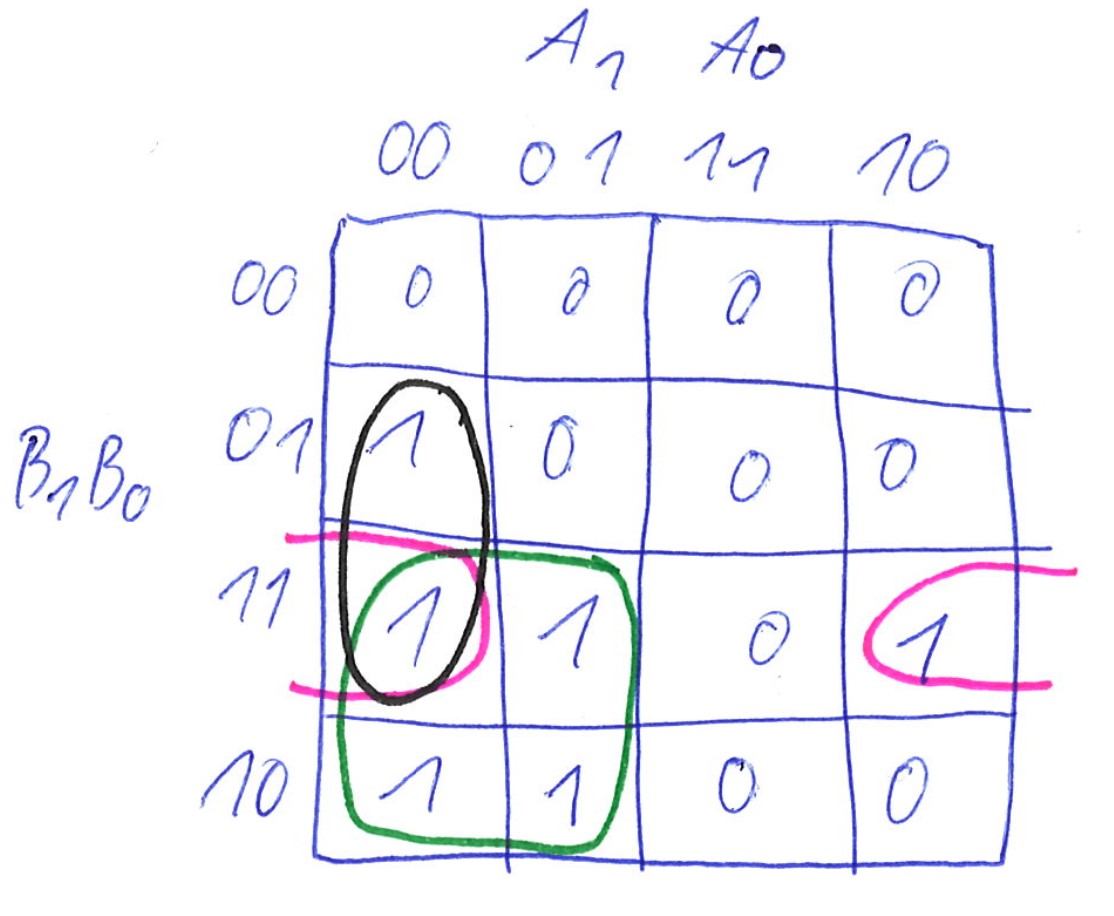 A₁ A₀
00 01 11 10
00 0 0 0 0
B₁B₀ 01 1 0 0 0
11 1 1 0 1
10 1 1 0 0